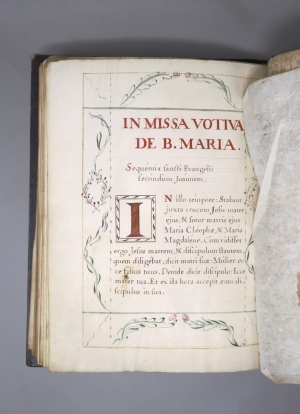 IN MISSA VOTIVA
DE B. MARIA.
Sequentia sancti Evangelii
secundum Joannem.
IN illo tempore: Stabant
juxta crucem Jesu mater
ejus, & soror matris ejus
Maria Cleophæ, & Maria
Magdalene. Cum vidisset
ergo Jesus matrem, & discipulum stantem,
quem diligebat, dicit matri suæ: Mulier ec
ce filius tuus. Deinde dicit discipulo: Ecce
mater tua. Et ex illa hora accepit eam di
scipulus in sua.